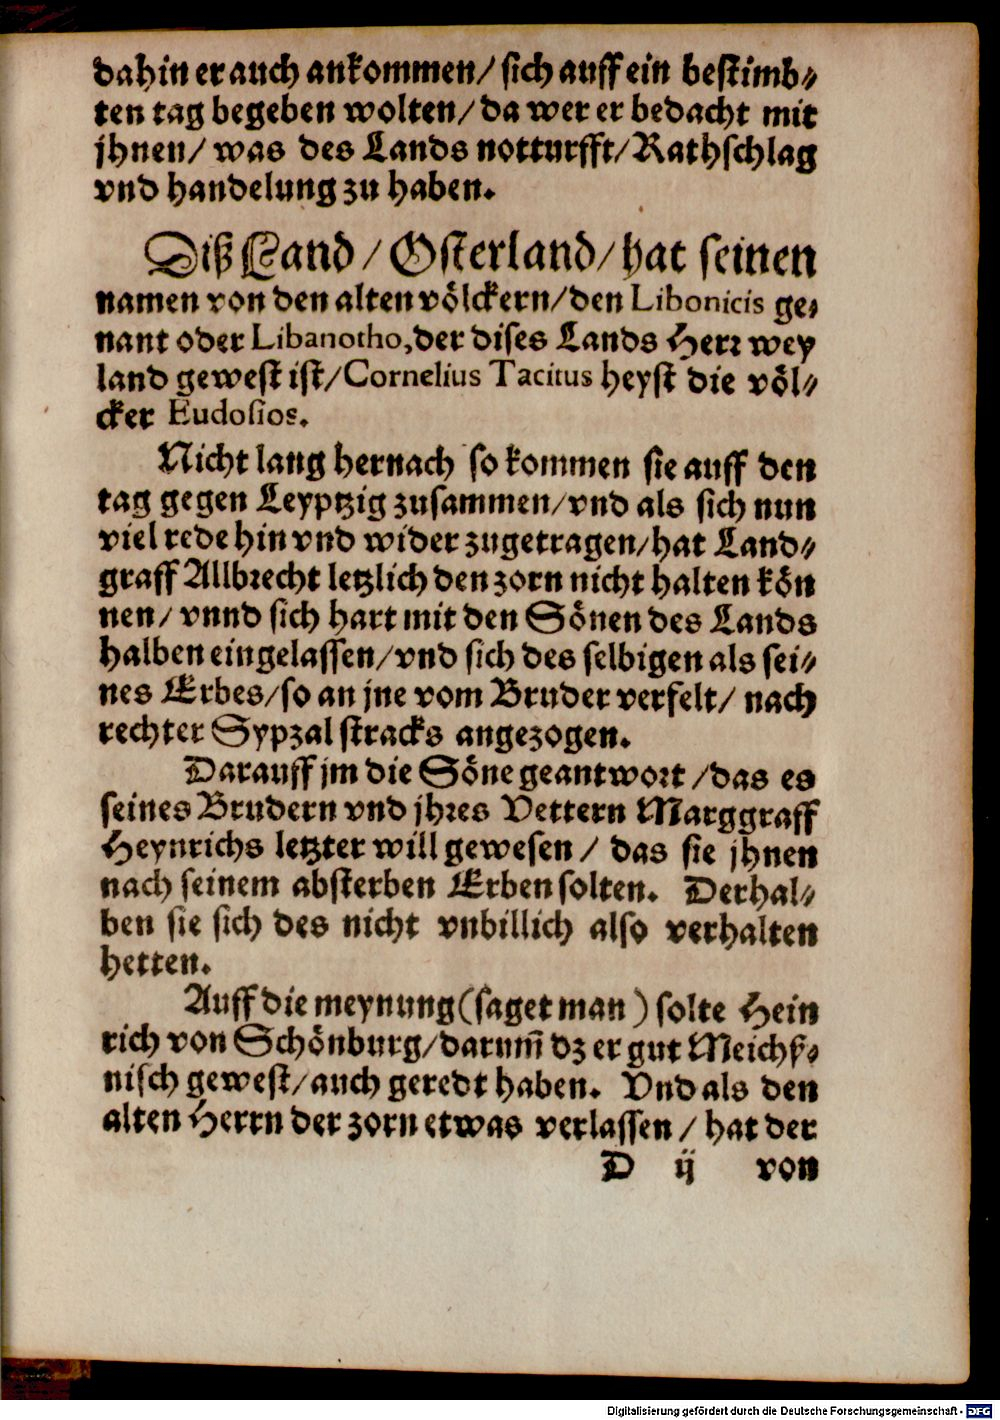 dahin er auch ankommen/ sich auff ein bestimb⸗
ten tag begeben wolten/ da wer er bedacht mit
jhnen/ was des Lands notturfft/ Rathschlag
vnd handelung zu haben.
Diß Land/ Osterland/ hat seinen
namen von den alten völckern/ den Libonicis ge⸗
nant oder Libanotho, der dises Lands Herr wey
land gewest ist/ Cornelius Tacitus heyst die völ⸗
cker Eudosios.
Nicht lang hernach so kommen sie auff den
tag gegen Leyptzig zusammen/ vnd als sich nun
viel rede hin vnd wider zugetragen/ hat Land⸗
graff Allbrecht letzlich den zorn nicht halten kön
nen/ vnnd sich hart mit den Sönen des Lands
halben eingelassen/ vnd sich des selbigen als sei⸗
nes Erbes/ so an jne vom Bruder verfelt/ nach
rechter Sypzal stracks angezogen.
Darauff jm die Söne geantwort/ das es
seines Brudern vnd jhres Vettern Marggraff
Heynrichs letzter will gewesen/ das sie jhnen
nach seinem absterben Erben solten. Derhal⸗
ben sie sich des nicht vnbillich also verhalten
hetten.
Auff die meynung (saget man) solte Hein
rich von Schönburg/ darum̃ dz er gut Meichß⸗
nisch gewest/ auch geredt haben. Vnd als den
alten Herrn der zorn etwas verlassen/ hat der
D ij von
Digitalisierung gefördert durch die Deutsche Forschungsgemeinschaft - DFG